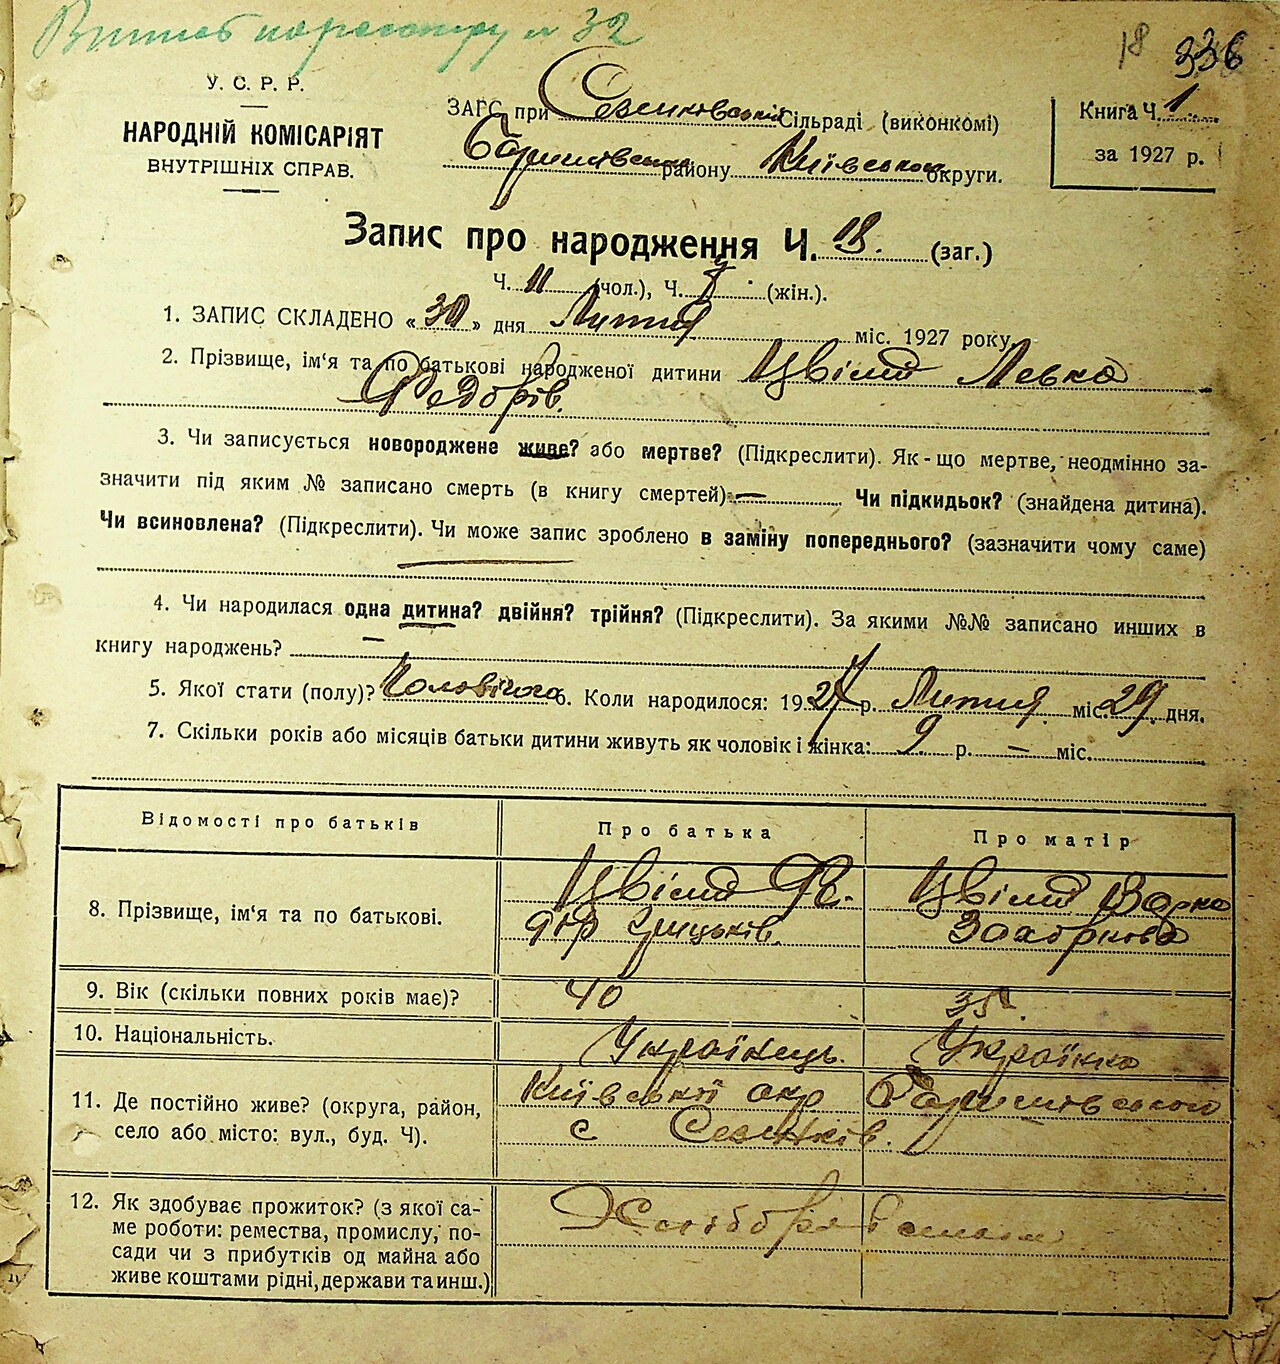 18 336
У. С. Р. Р.
НАРОДНІЙ КОМІСАРІЯТ
ВНУТРІШНІХ СПРАВ.
ЗАГС при Сеньковській Сільраді (виконкомі)
району Київської округи.
Книга Ч. 1
за 1927 р.
Запис про народження Ч. 18. (заг.)
Ч. 11 (чол.), Ч. 7 (жін.).
1. ЗАПИС СКЛАДЕНО «30» дня Липня міс. 1927 року.
2. Прізвище, ім‘я та по батькові народженої дитини Цвілий Левко
Федорів.
3. Чи записується новороджене живе? або мертве? (Підкреслити). Як-що мертве, неодмінно за-
значити під яким № записано смерть (в книгу смертей) — Чи підкидьок? (знайдена дитина).
Чи всиновлена? (Підкреслити). Чи може запис зроблено в заміну попереднього? (зазначити чому саме)
4. Чи народилася одна дитина? двійня? трійня? (Підкреслити). За якими №№ записано инших в
книгу народжень? —
5. Якої стати (полу)? Чоловіча 6. Коли народилося: 1927 р. Липня міс. 29 дня.
7. Скільки років або місяців батьки дитини живуть як чоловік і жінка: 9 р. — міс.
Відомості про батьків Про батька Про матір
8. Прізвище, ім‘я та по батькові. Цвілий Фе- Цвілий Варка
дір Грицьків. Захаркова
9. Вік (скільки повних років має)? 40 35.
10. Національність. Українець. Українка
11. Де постійно живе? (округа, район, Київської окр Баришівського
село або місто: вул., буд. Ч). с Сеньків.
12. Як здобуває прожиток? (з якої са-
ме роботи: ремества, промислу, по-
сади чи з прибутків од майна або
живе коштами рідні, держави та инш.)